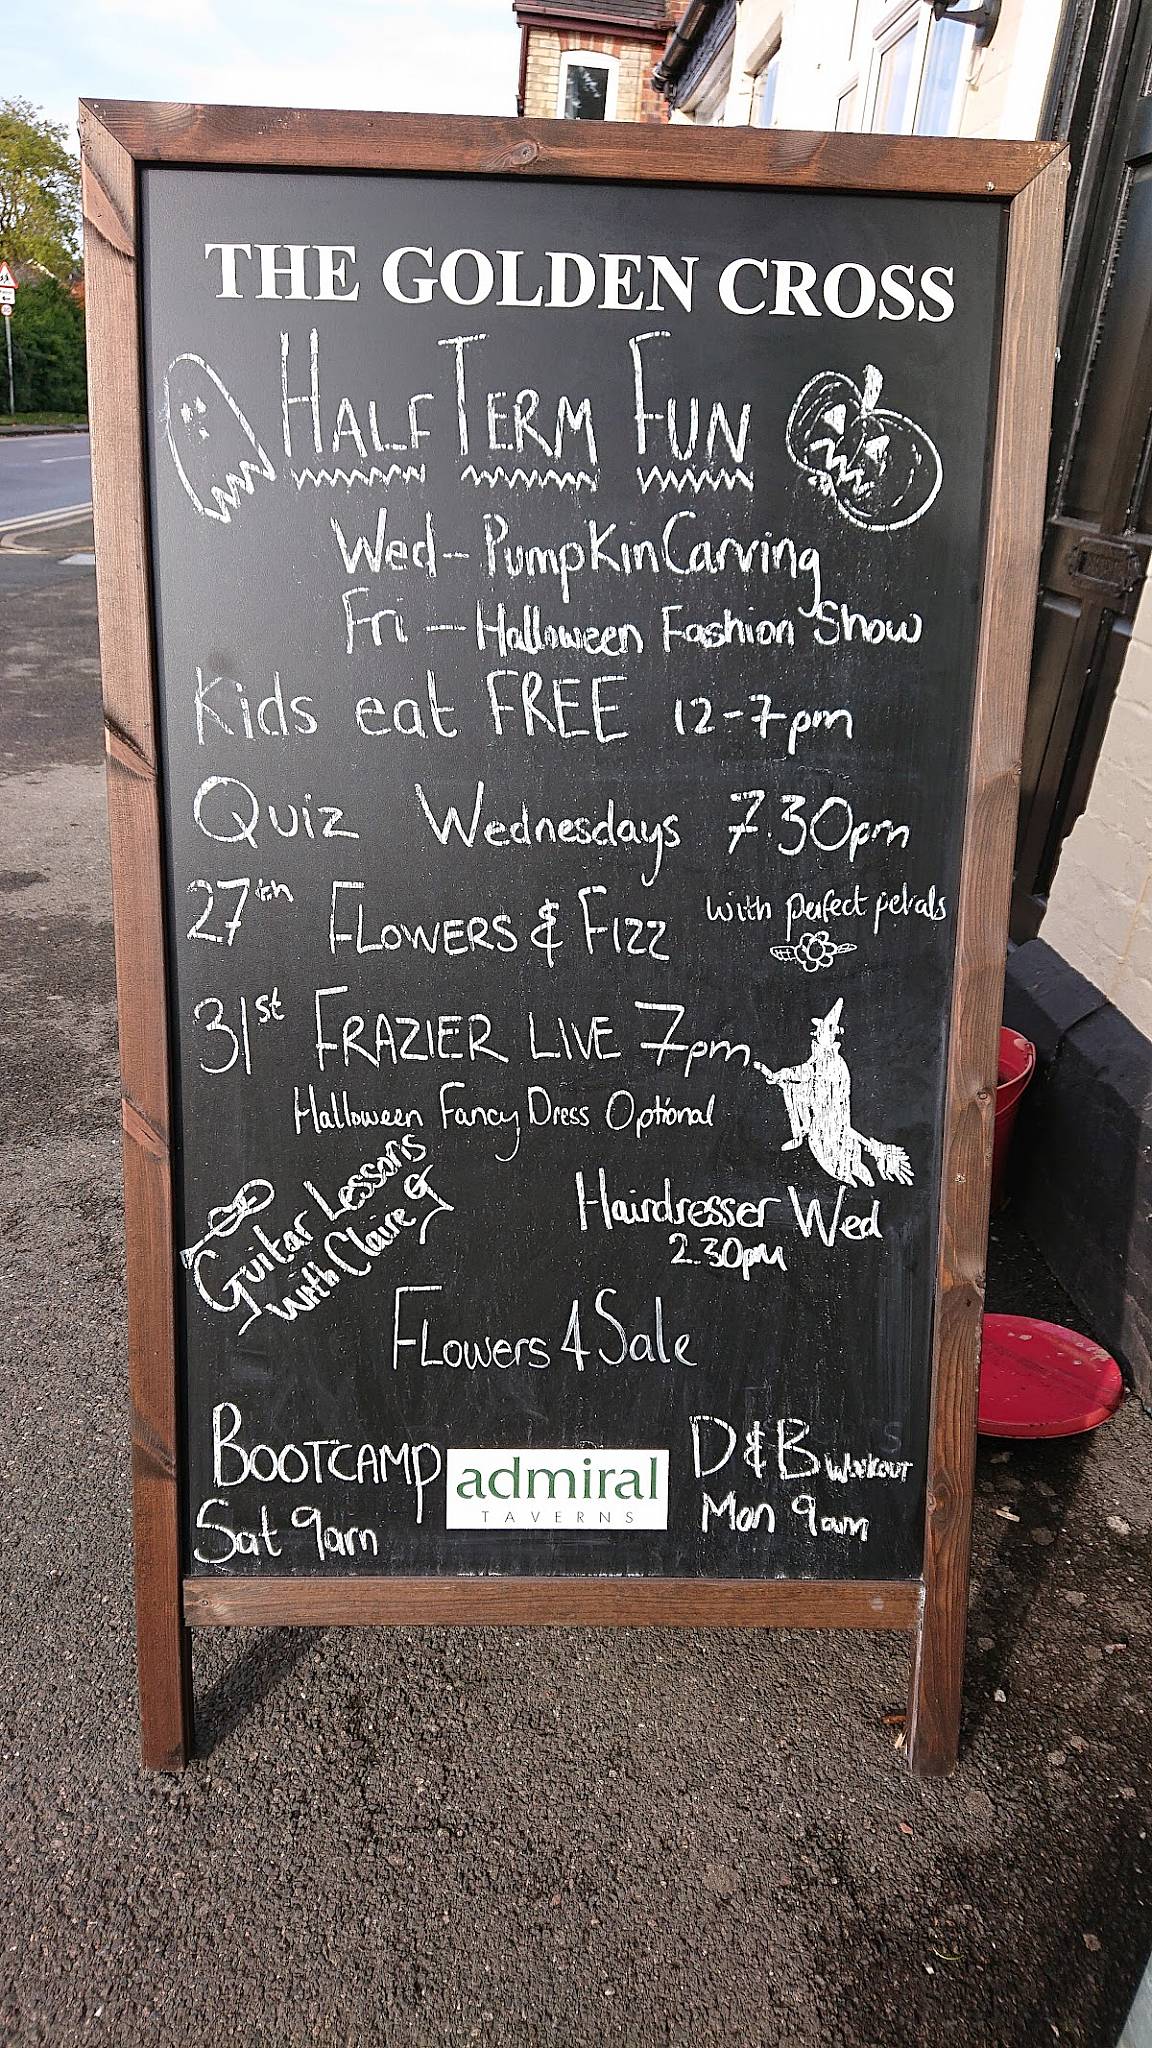 THE GOLDEN CROSS
HALF TERM FUN
Wed - Pumpkin Carving
Fri - Halloween Fashion Show
Kids eat FREE 12-7pm
Quiz Wednesdays 7.30pm
27th FLOWERS & FIZZ with perfect petals
31st FRAZIER LIVE 7pm
Halloween Fancy Dress Optional
Guitar Lessons
with Claire
Hairdresser Wed
2.30pm
FLowers 4 Sale
BOOTCAMP
Sat 9am
admiral
TAVERNS
D&B WORKOUT
Mon 9am